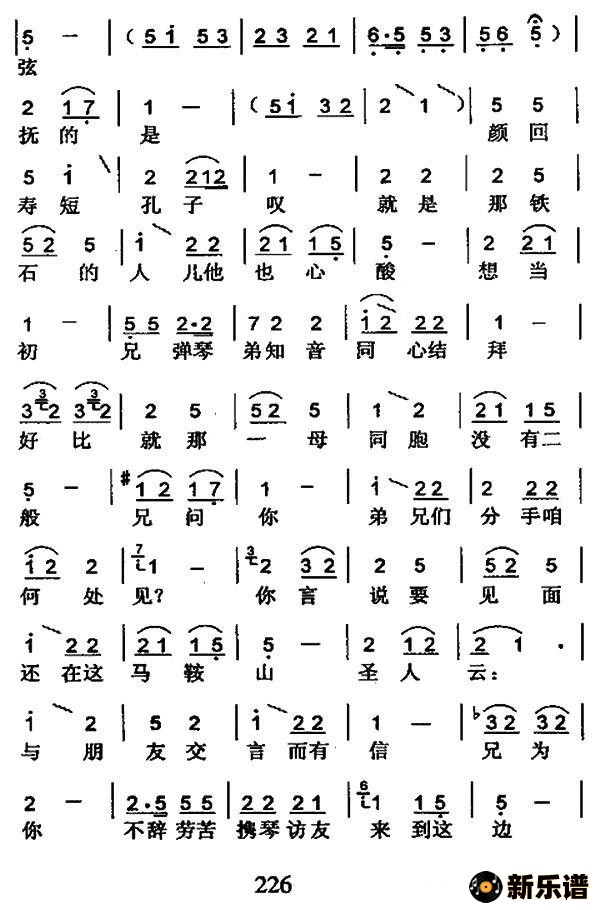 5 － | （ 5 i 5 3 | 2 3 2 1 | 6·5 5 3 | 5 6 5 ） |
弦
2 1 7 | 1 － | （ 5 i 3 2 | 2 1 ） | 5 5
抚的 是 颜回
5 i | 2 2 1 2 | 1 － | 2 2 | 2 5
寿短 孔子 叹 就是 那铁
5 2 5 | i 2 2 | 2 1 1 5 | 5 － | 2 2 1
石的 人儿他 也心 酸 想当
1 － | 5 5 2·2 | 7 2 2 | i 2 2 2 | 1 －
初 兄弹琴 弟知音 同心结 拜
3 3 2 3 3 2 | 2 5 | 5 2 5 | 1 2 | 2 1 1 5
好比 就那 一母 同胞 没有二
5 － | #1 2 1 7 | 1 － | i 2 2 | 2 2 2
般 兄问 你 弟兄们 分手咱
i 2 2 | 7 i 1 － | 3 2 3 2 | 2 5 | 5 2 5
何处 见？ 你言 说要 见面
i 2 2 | 2 1 1 5 | 5 － | 2 1 2 | 2 1 ·
还在这 马鞍 山 圣人 云：
i 2 | 5 2 | i 2 2 | 1 — | b3 2 3 2
与朋 友交 言而有 信 兄为
2 － | 2·5 5 5 | 2 2 2 1 | 6 i 1 1 5 | 5 －
你 不辞劳苦 携琴访友 来到这 边
226
新乐谱